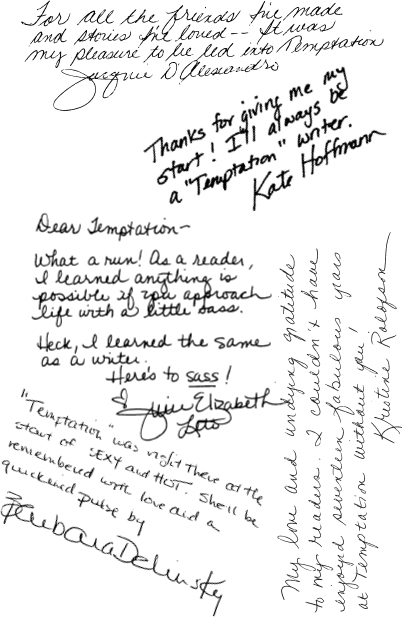 For all the friends I've made
and stories I've loved -- It was
my pleasure to be led into Temptation
Jacquie D'Alessandro
Thanks for giving me my
start! I'll always be
a "Temptation" writer.
Kate Hoffmann
Dear Temptation-
What a run! As a reader,
I learned anything is
possible if you approach
life with a little sass.
Heck, I learned the same
as a writer.
Here's to sass!
Julie Elizabeth
Leto
"Temptation" was right there at the
start of SEXY and HOT. She'll be
remembered with love and a
quickened pulse by
Barbara Delinsky
My love and undying gratitude
to my readers. I couldn't have
enjoyed seventeen fabulous years
at Temptation without you!
Kristine Rolofson